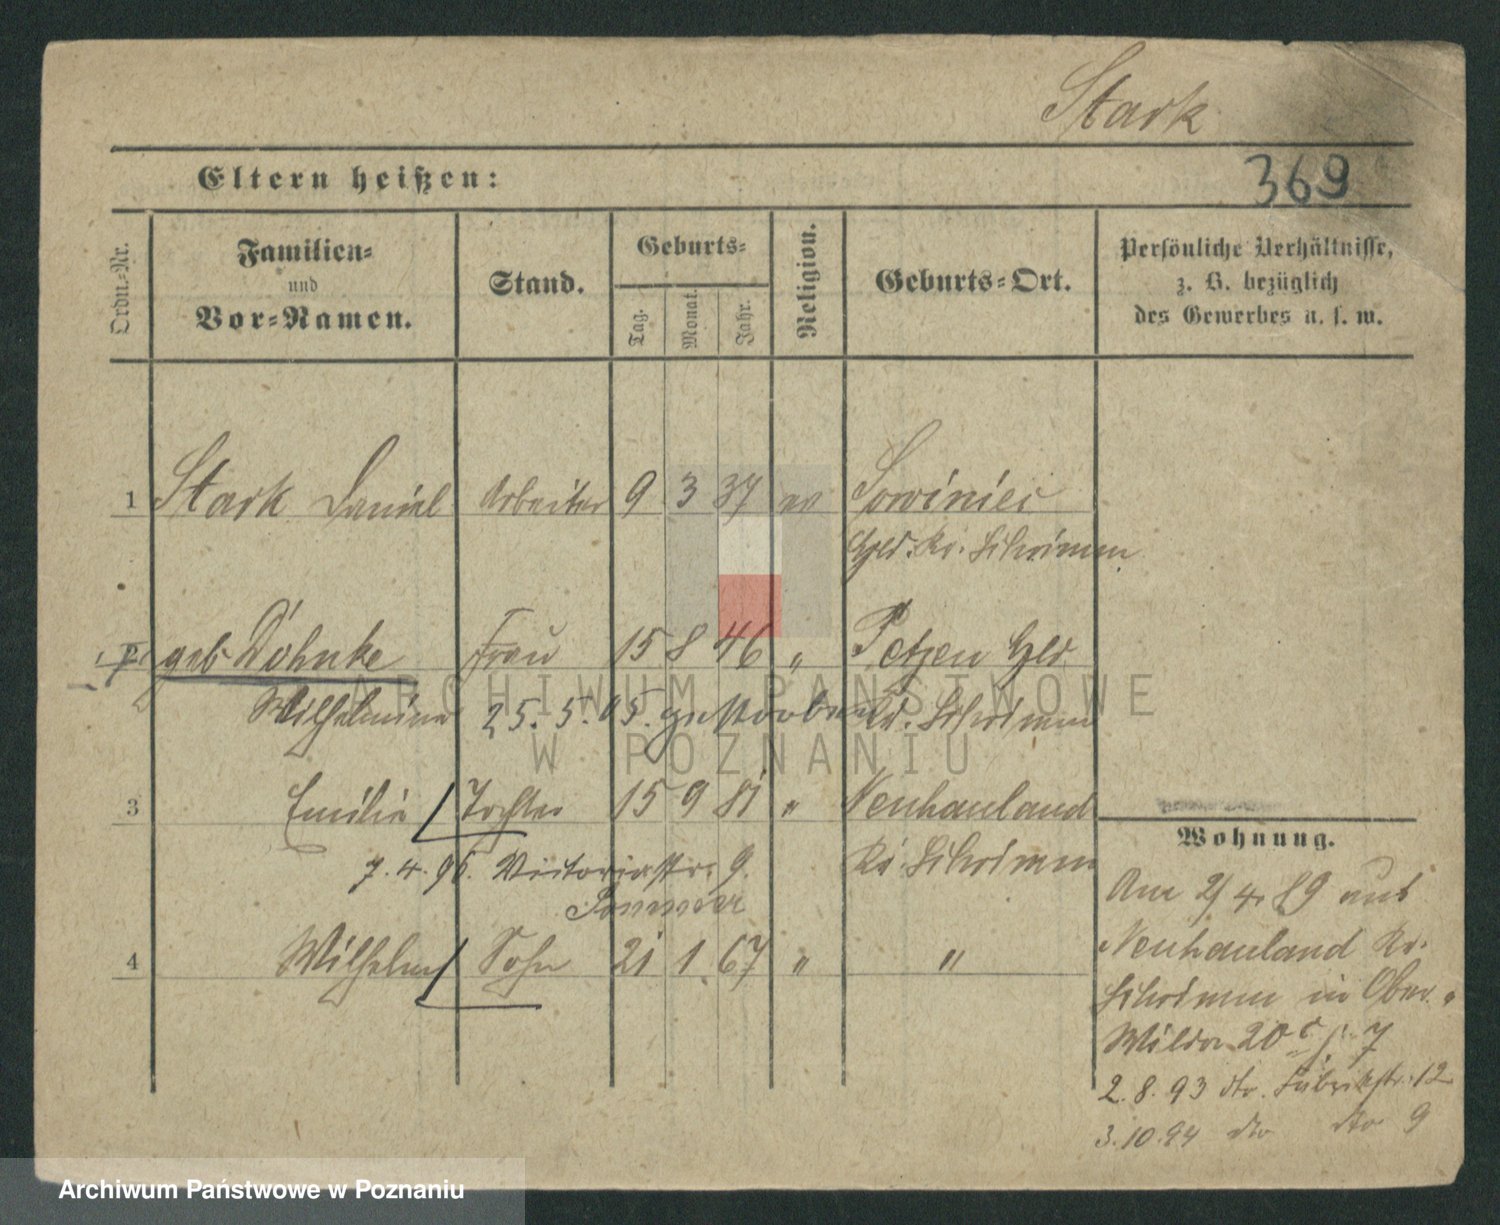 Stark
369
Eltern heißen:
Ordn.-Nr.
Familien-
und
Vor-Namen.
Stand.
Geburts-
Tag.
Monat.
Jahr.
Religion.
Geburts-Ort.
Persönliche Verhältnisse,
z. B. bezüglich
des Gewerbes u. s. w.
1 Stark Daniel Arbeiter 9 3 37 ev Sowiniec
Gld. Kr. Schrimm
2 geb Döhnke Frau 15 8 46 " Petzen Gld
Wilhelmine 25. 5. 05. gestorben Kr. Schrimm
3 Emilie Tochter 15 9 81 " Neuhauland
7. 4. 96. Victoriastr. 9. Kr. Schrimm
4 Wilhelm Sohn 21 1 67 " "
Wohnung.
Am 2/4. 89 aus
Neuhauland Kr.
Schrimm in Ober-
Wilda 20c j. 7
2. 8. 93 dto. Fabrikstr. 12
3. 10. 94 dto dto 9
ARCHIWUM PAŃSTWOWE
W POZNANIU
Archiwum Państwowe w Poznaniu